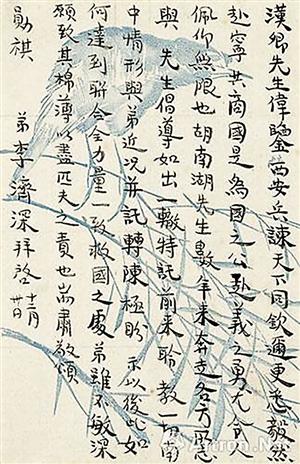 漢卿先生惇鑒西安兵諫天下同欽邇更悉毅然
赴寧共商國是為國之公赴義之勇尤令人
佩仰無限也胡南湖先生數年来奔走各方
與 先生倡導如出一轍特託前来聆教一切南
中情形與弟近況并託轉陳極盼 示以後此如
何達到聯合全力量一致救國之處弟雖不敏深
願致其棉薄以盡匹夫之責也耑肅敬頌
勛祺
弟李濟深拜啓
Artron.Net